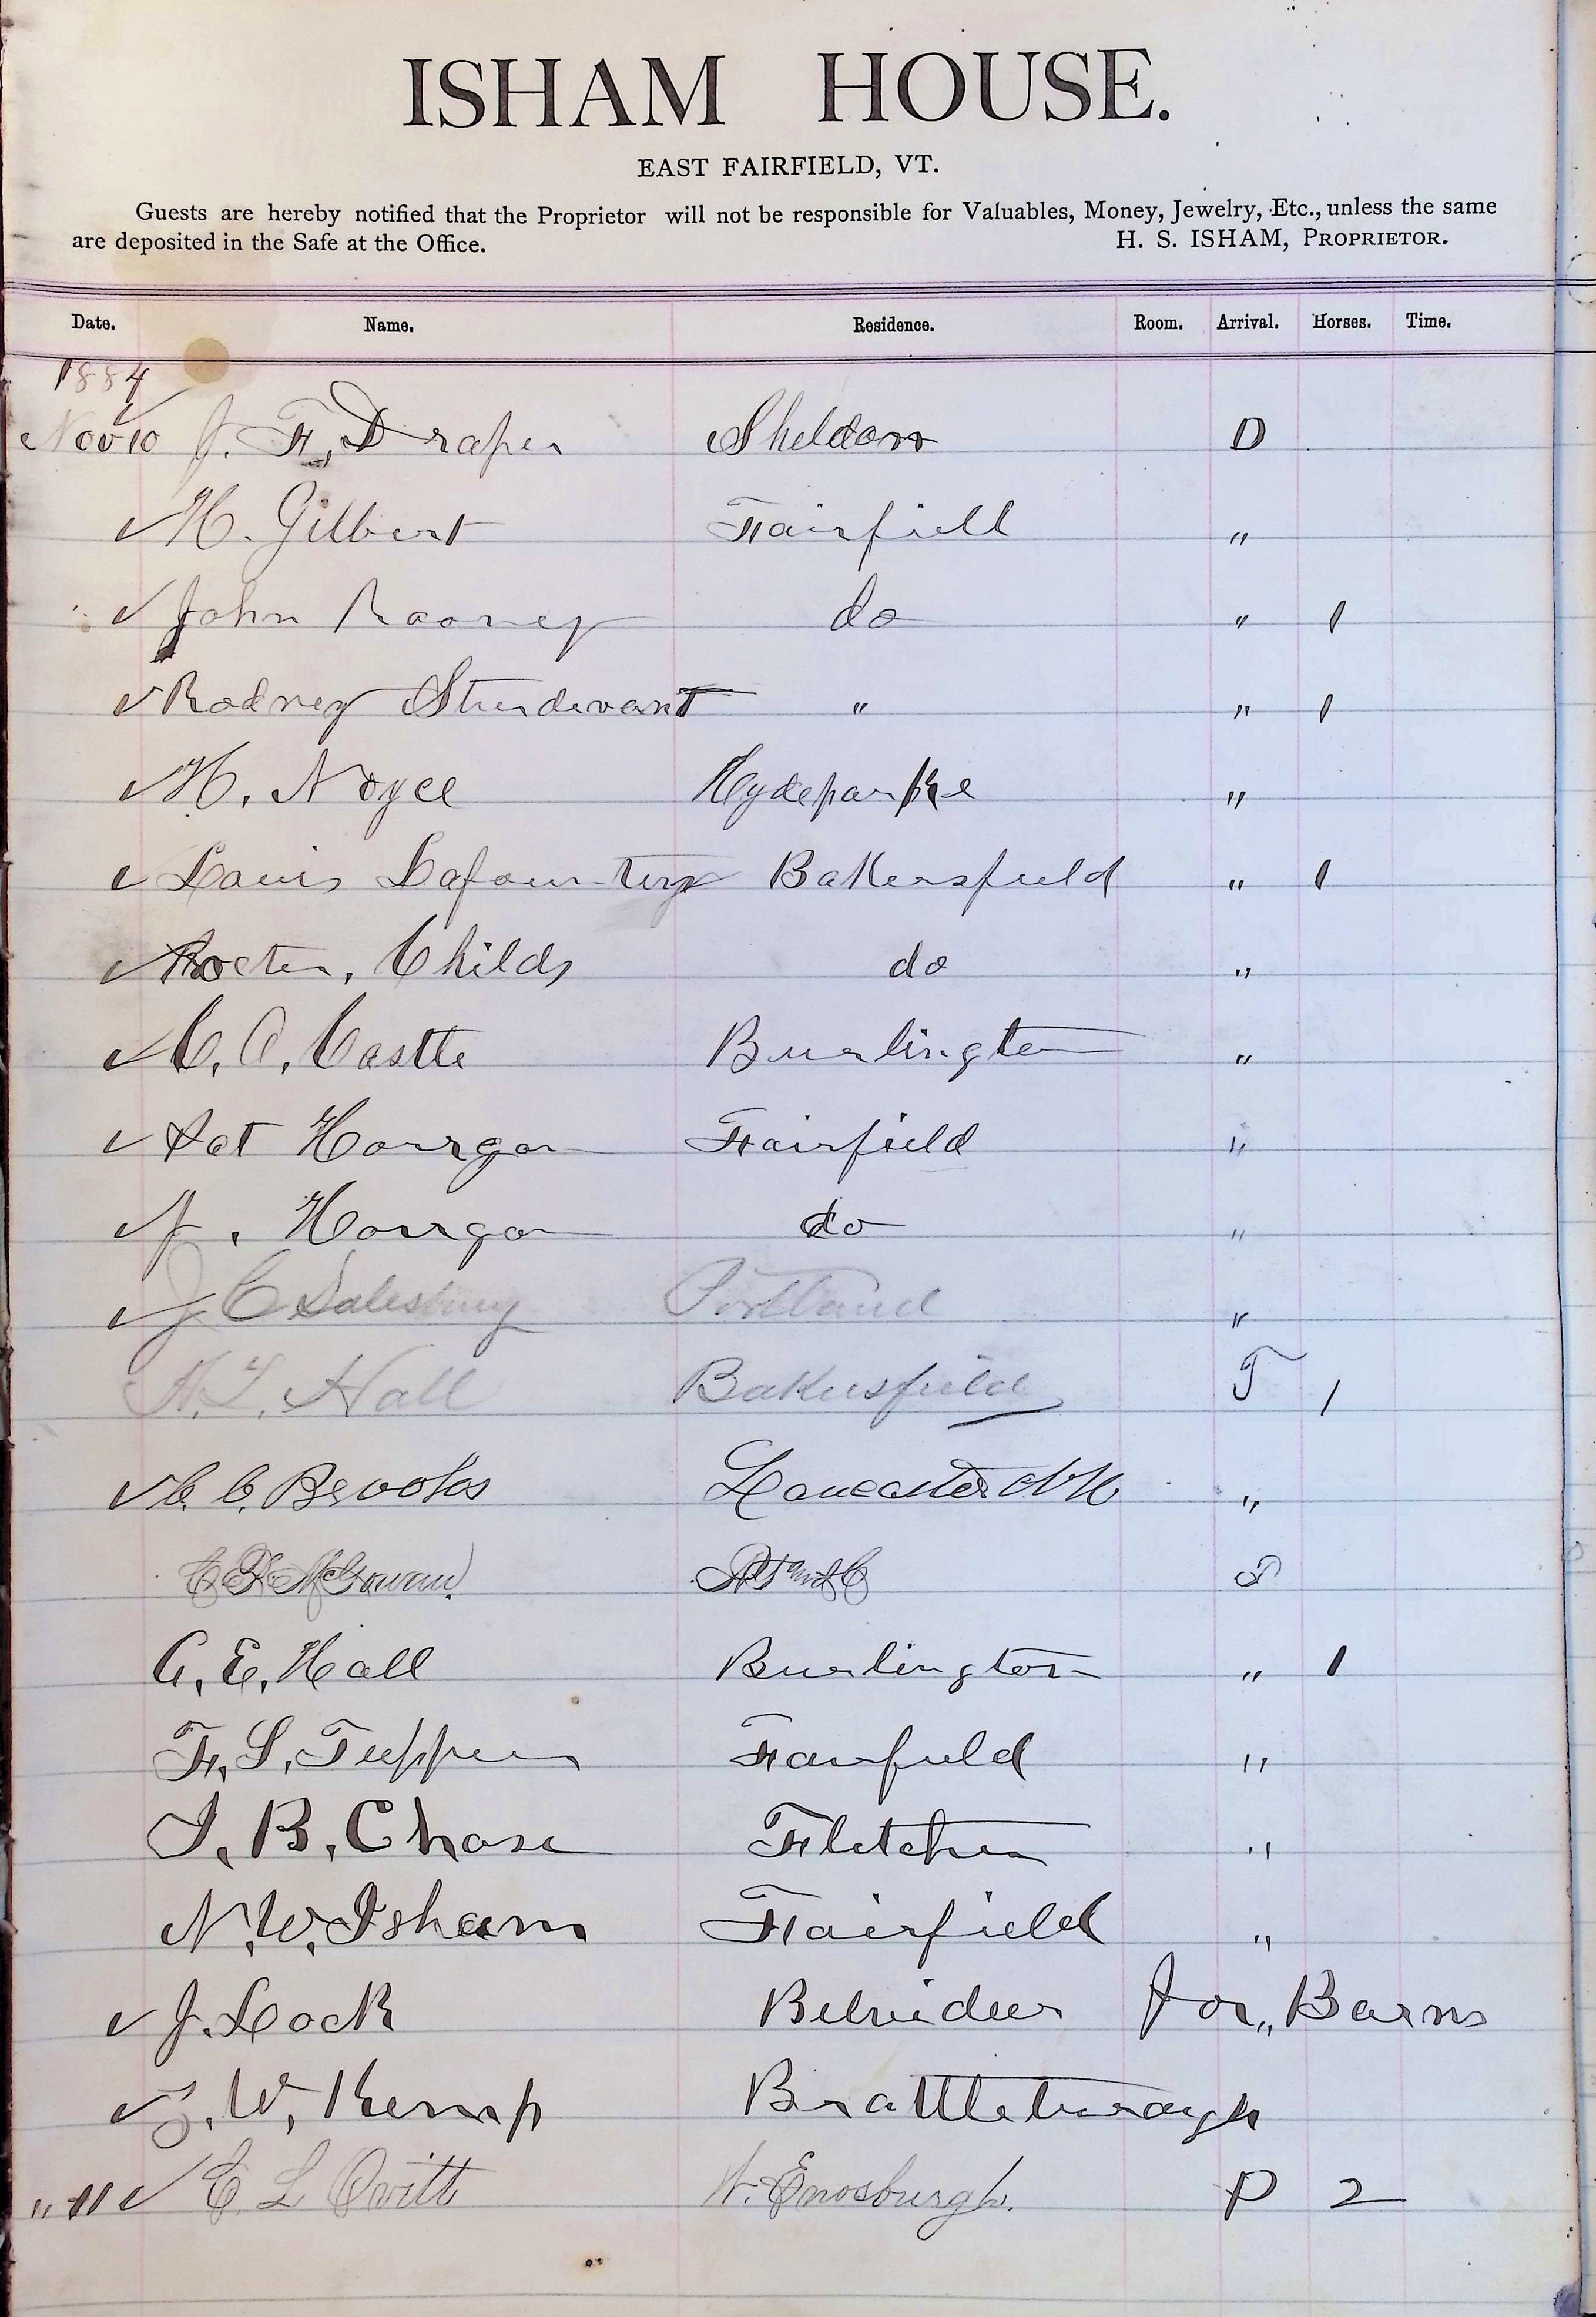 ISHAM HOUSE.
EAST FAIRFIELD, VT.
Guests are hereby notified that the Proprietor will not be responsible for Valuables, Money, Jewelry, Etc., unless the same
are deposited in the Safe at the Office. H. S. ISHAM, PROPRIETOR.
Date. Name. Residence. Room. Arrival. Horses. Time.
1884
Nov 10 J. F. Draper Sheldon D
✓ H. Gilbert Fairfield "
✓ John Rooney do " 1
✓ Rodney Sturdevant " " 1
✓ H. Noyce Hydeparke "
✓ Louis Lafountury Bakersfield " 1
✓ Childs do "
✓ C. A. Castle Burlington "
✓ Pat Horrgan Fairfield "
✓ J. Horrgan do "
✓ J C Salesbury Portland "
H. L. Hall Bakersfield T 1
✓ C. C. Brooks Lancaster NH "
McGowan
C. E. Hall Burlington " 1
F. S. Tupper Fairfield "
I. B. Chase Fletcher "
N. W. Isham Fairfield "
✓ J. Lock Belvidere for " Barns
✓ W. Kemp Brattleburough
" 11 ✓ E. L Ovitt W. Enosburgh. D 2